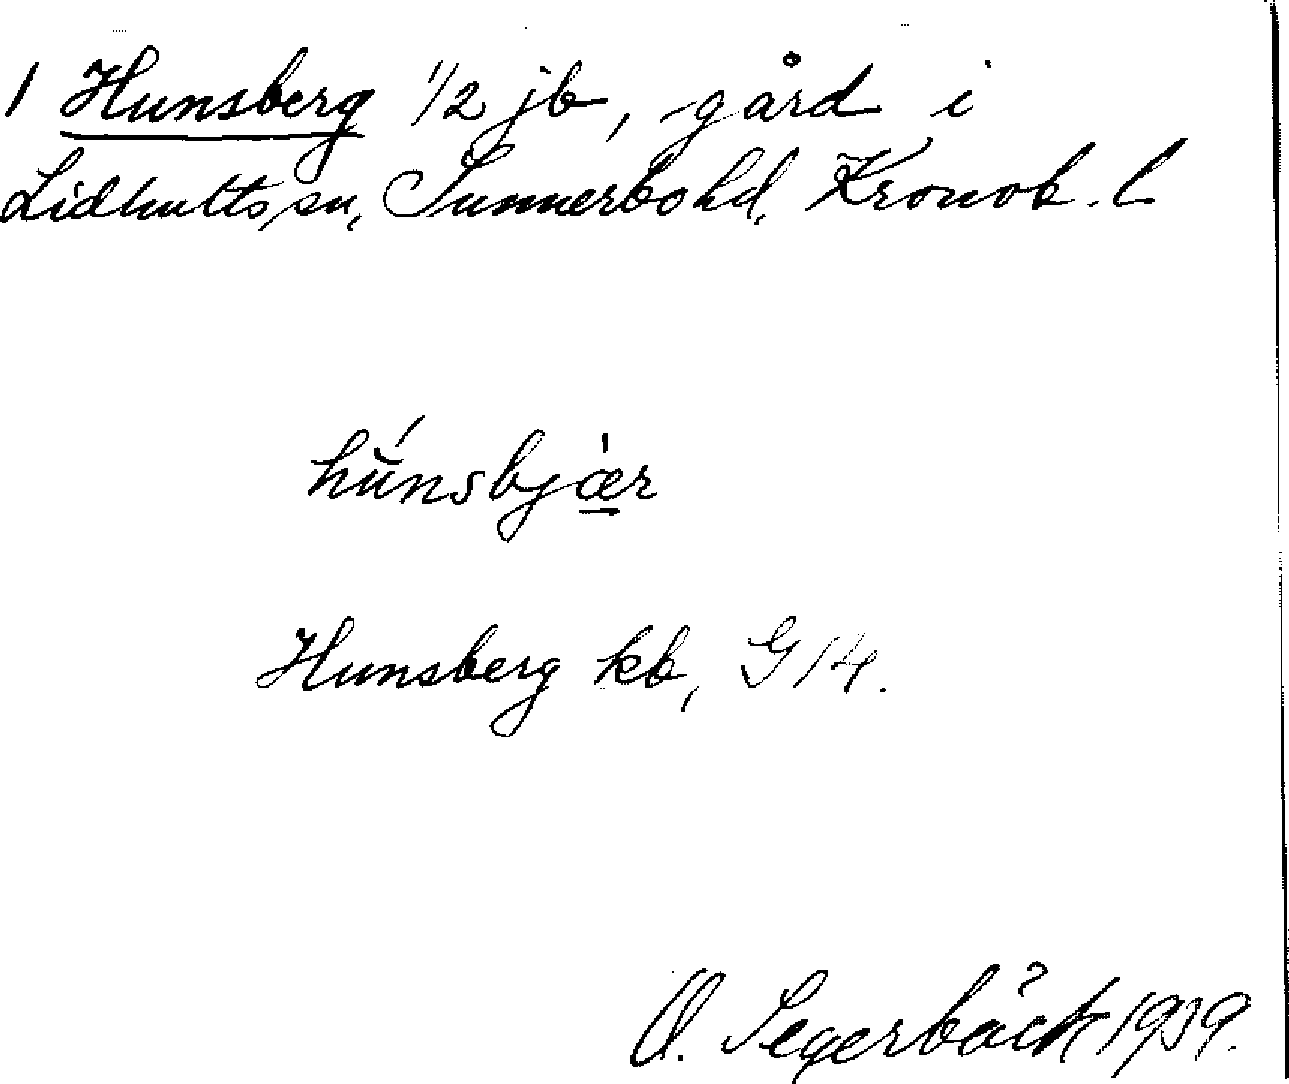 1 Hunsberg 1/2 jb, gård i
Lidhults sn, Sunnerbo hd, Kronob. l
hŭ́nsbjæ̱̀r
Hunsberg kb, G 14.
O. Segerbäck 1939.